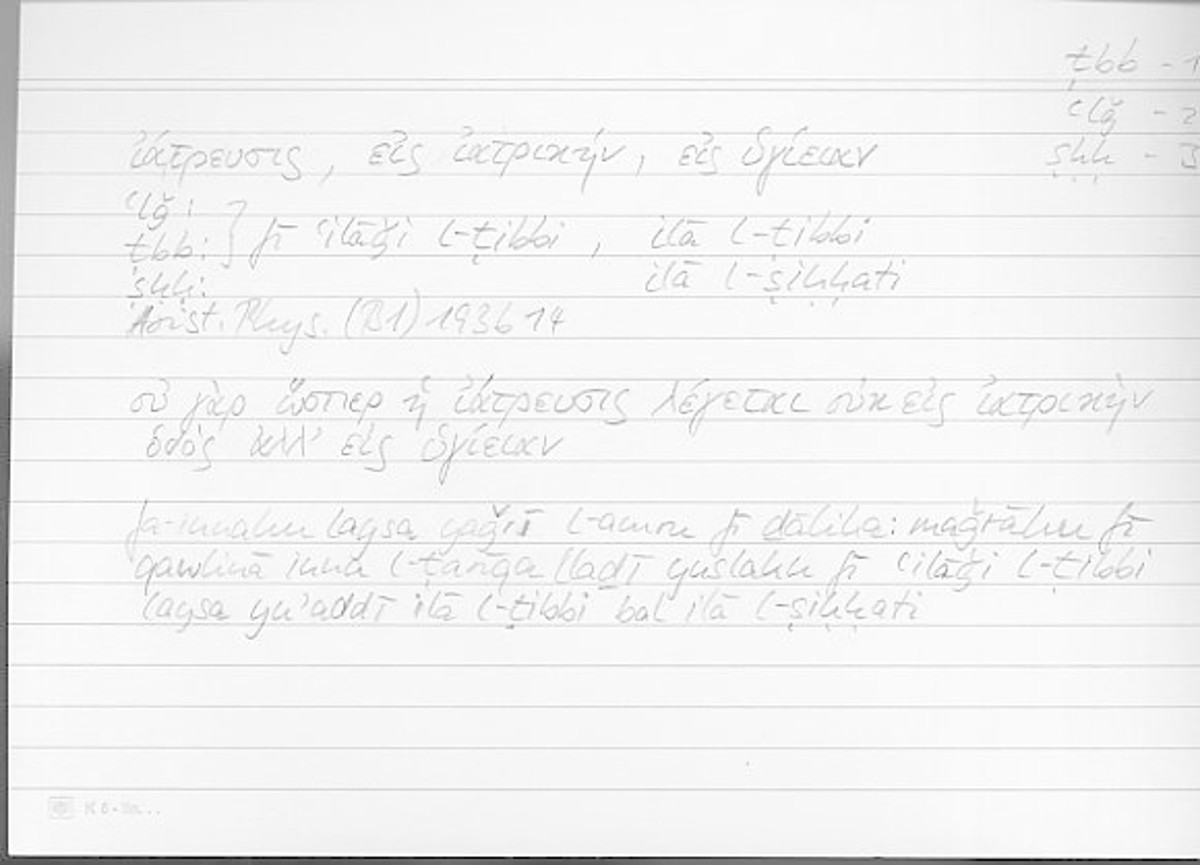 ṭbb - 1
ʿlǧ - 2
ṣḥḥ - 3
ἰάτρευσις, εἰς ἰατρικήν, εἰς ὑγίειαν
ʿlǧ:
ṭbb: } fī ʿilāǧi l-ṭibbi, ilā l-ṭibbi
ṣḥḥ: ilā l-ṣiḥḥati
Arist. Phys. (B1) 193b14
οὐ γὰρ ὥσπερ ἡ ἰάτρευσις λέγεται οὐκ εἰς ἰατρικὴν
ὁδὸς ἀλλ’ εἰς ὑγίειαν
fa-innahu laysa yaǧrī l-amru fī ḏālika: maǧrāhu fī
qawlinā inna l-ṭarīqa llaḏī yuslaku fī ʿilāǧi l-ṭibbi
laysa yuʾaddī ilā l-ṭibbi bal ilā l-ṣiḥḥati